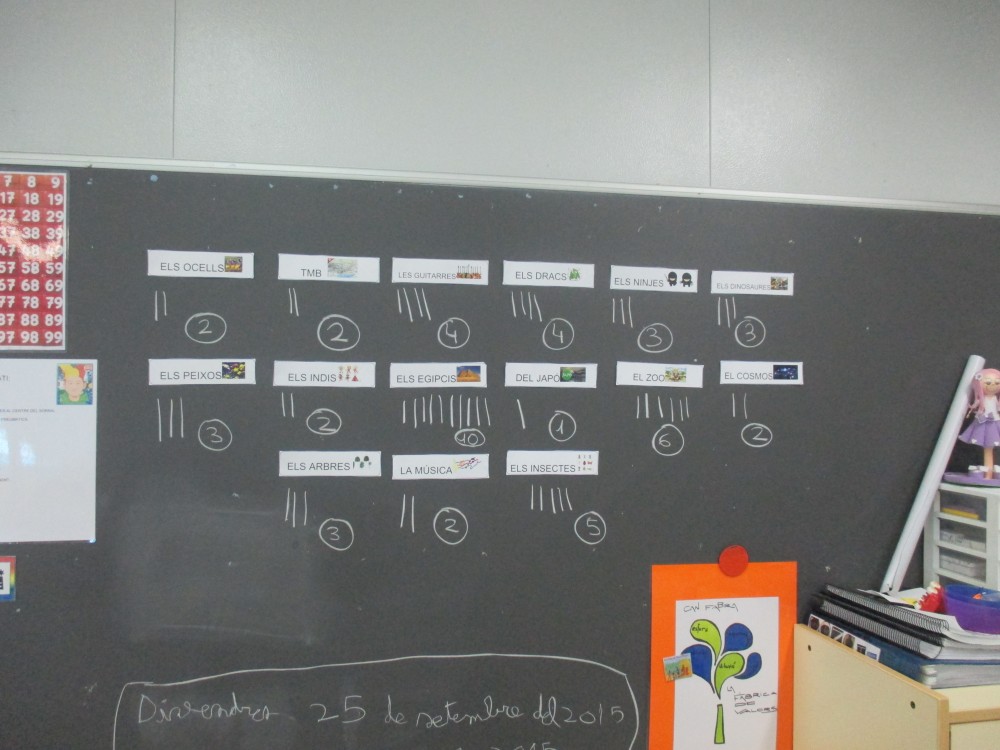 7 8 9
17 18 19
27 28 29
37 38 39
47 48 49
57 58 59
67 68 69
77 78 79
87 88 89
97 98 99
ELS OCELLS TMB LES GUITARRES ELS DRACS ELS NINJES ELS DINOSAURES
2 2 4 4 3 3
ELS PEIXOS ELS INDIS ELS EGIPCIS DEL JAPÓ EL ZOO EL COSMOS
3 2 10 1 6 2
ELS ARBRES LA MÚSICA ELS INSECTES
3 2 5
CAN FABRA
LA
FÀBRICA
DE
VALORS
Divendres 25 de setembre del 2015